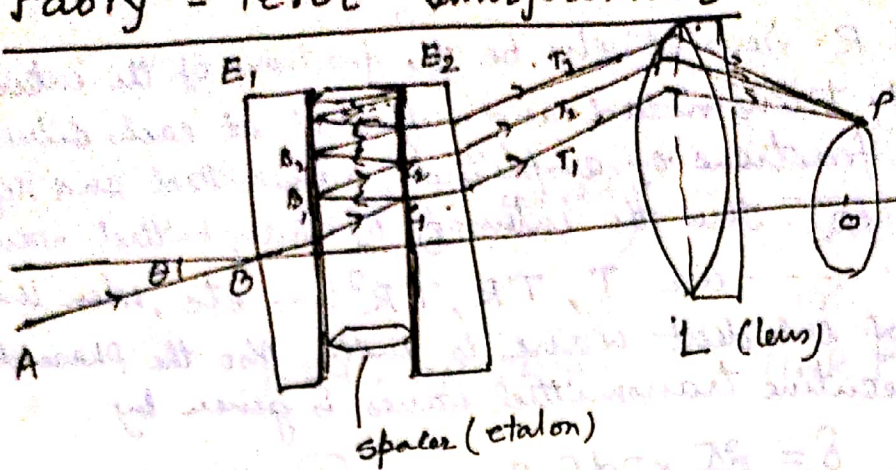 Fabry - Perot
E₁
E₂
T₃
T₂
T₁
P
B₂
B₁
C₁
O
θ
B
A
L (lens)
spacer (etalon)